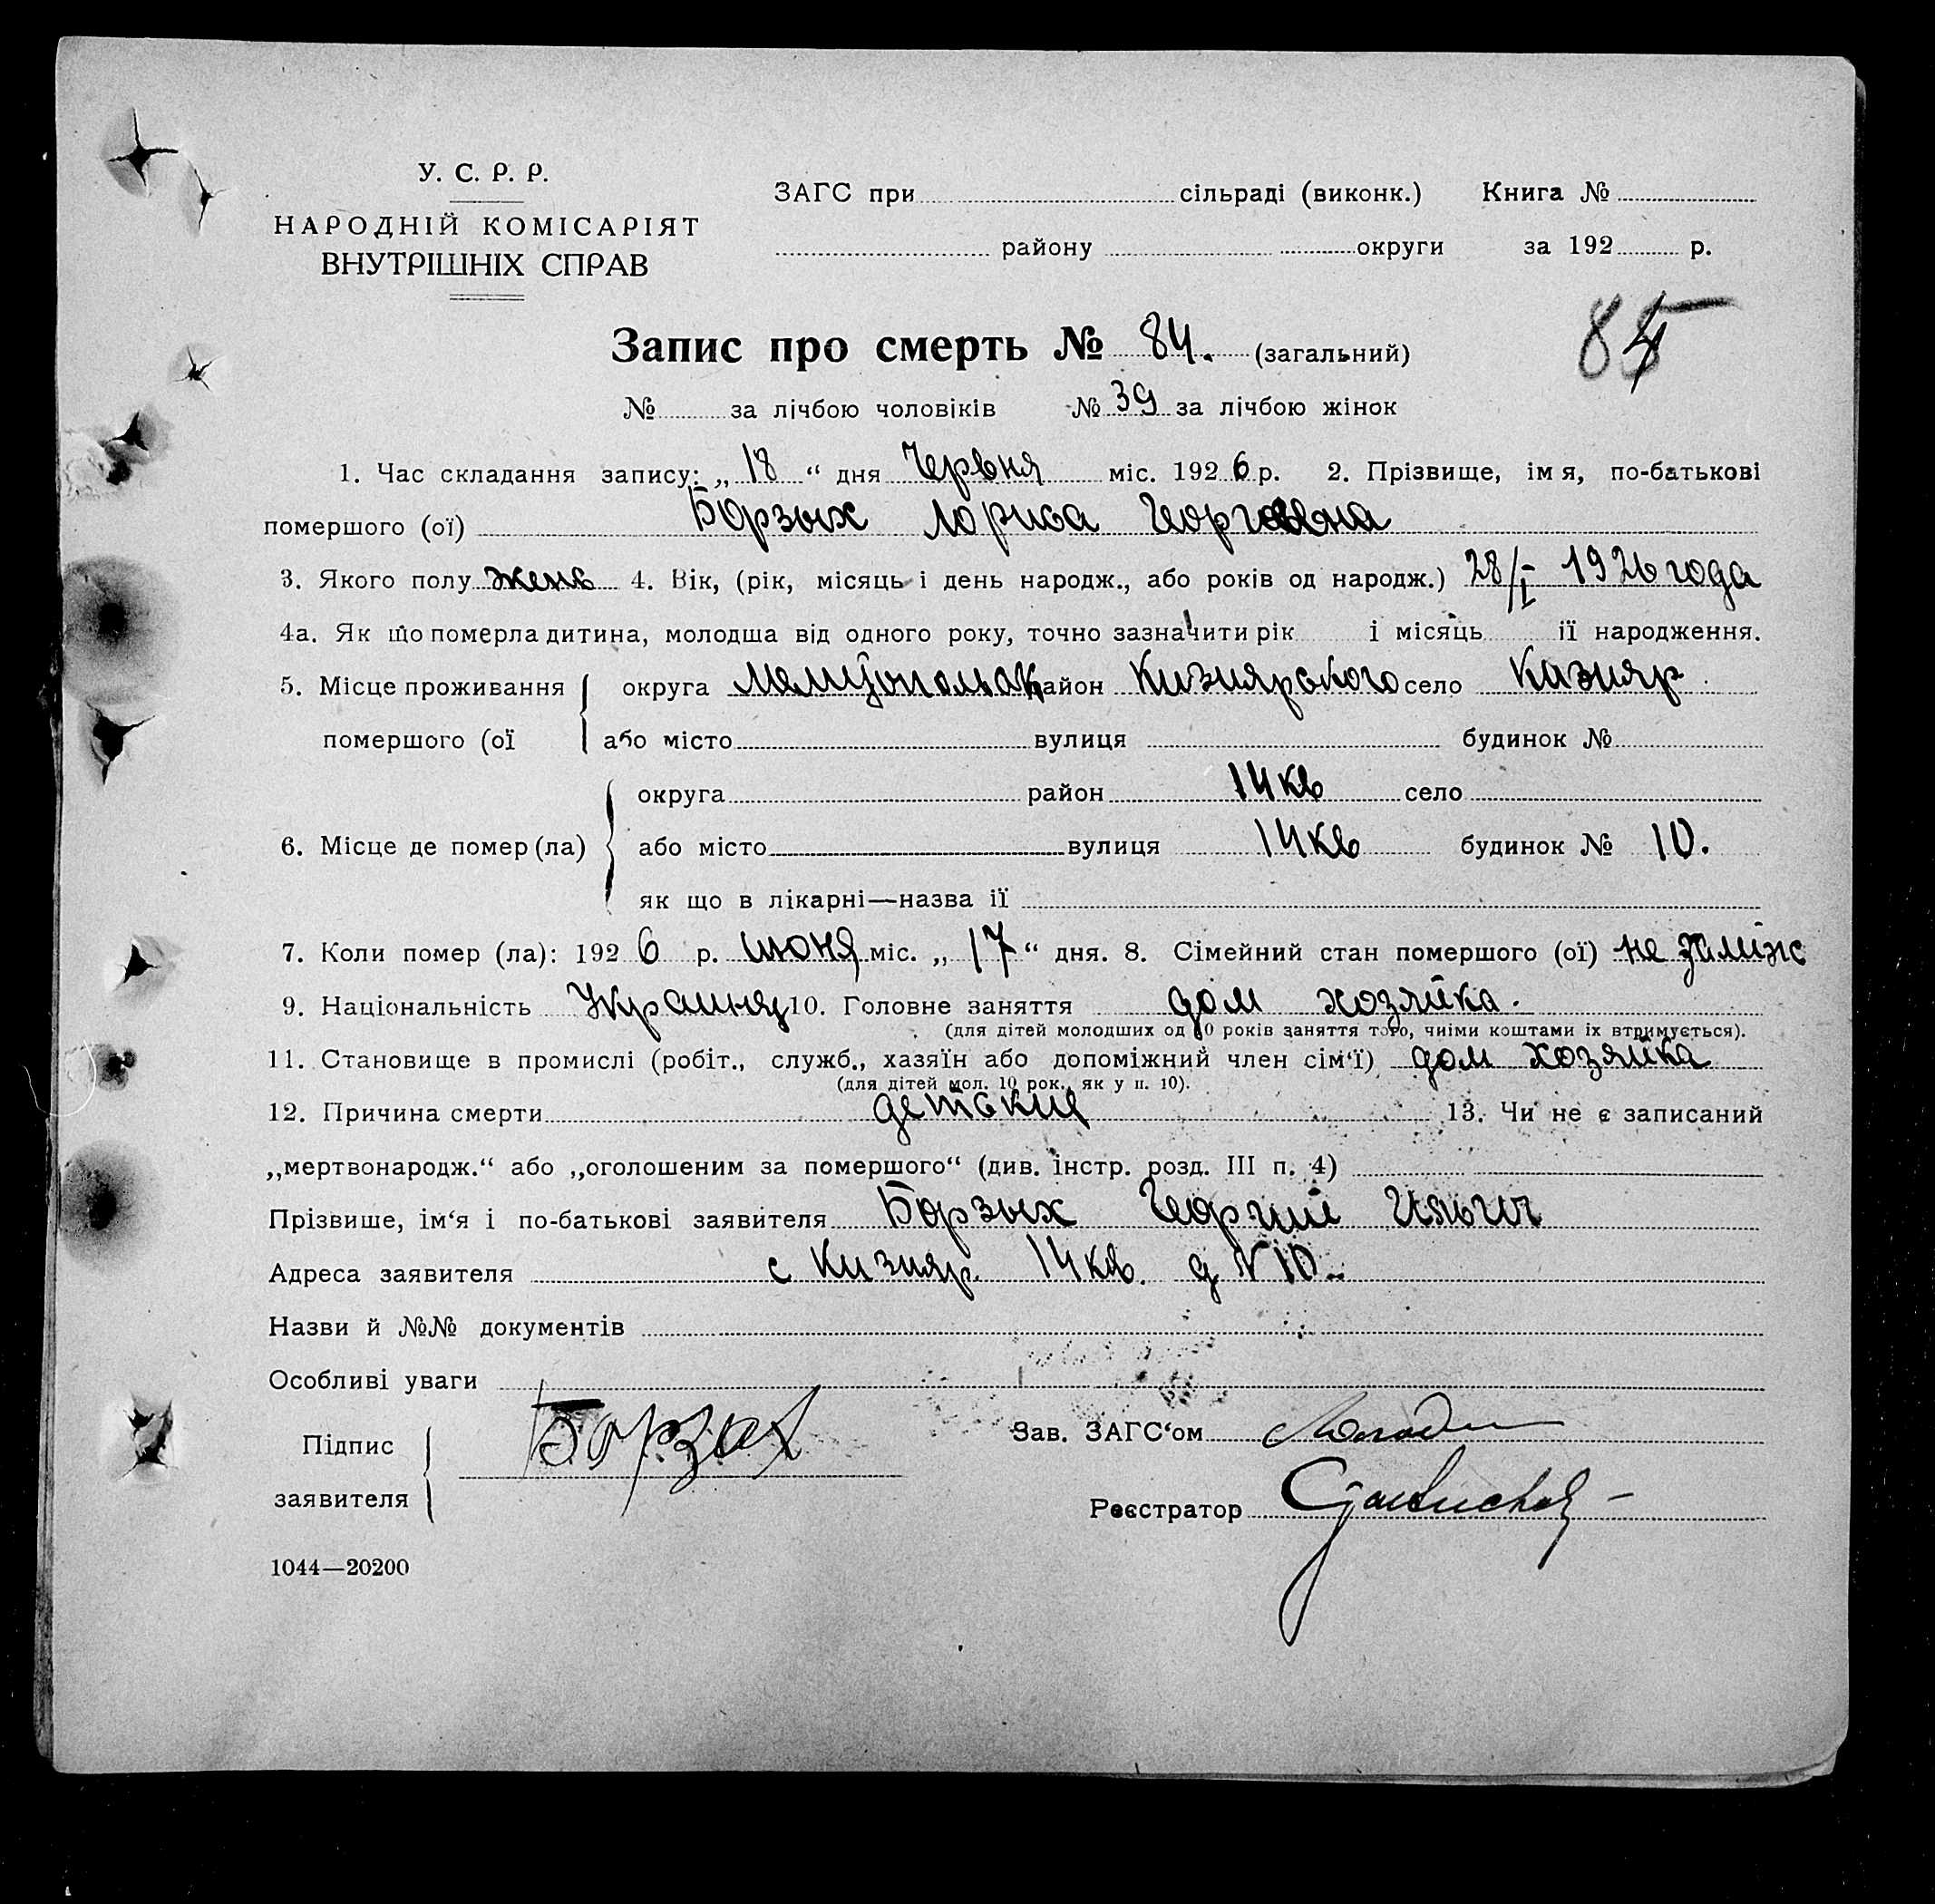 У. С. Р. Р.
НАРОДНІЙ КОМІСАРІЯТ
ВНУТРІШНІХ СПРАВ
ЗАГС при сільраді (виконк.) Книга №
району округи за 192 р.
Запис про смерть № 84. (загальний)
№ за лічбою чоловіків № 39 за лічбою жінок
1. Час складання запису: „ 18 “ дня Червня міс. 192 6 р. 2. Прізвище, імя, по-батькові
помершого (ої) Борзых Лориса Георгевна
3. Якого полу женс 4. Вік, (рік, місяць і день народж., або років од народж.) 28/I 1926 года
4а. Як що померла дитина, молодша від одного року, точно зазначити рік і місяць її народження.
5. Місце проживання округа район Кизиярского село Казияр
помершого (ої або місто вулиця будинок №
округа район 14 кв село
6. Місце де помер (ла) або місто вулиця 14 кв будинок № 10.
як що в лікарні—назва її
7. Коли помер (ла): 192 6 р. июня міс. „ 17 “ дня. 8. Сімейний стан помершого (ої) не
9. Національність 10. Головне заняття дом хозяйка.
(для дітей молодших од 10 років заняття того, чиїми коштами їх втримується).
11. Становище в промислі (робіт., служб., хазяїн або допоміжний член сім‘ї) дом хозяйка
(для дітей мол. 10 рок., як у п. 10).
12. Причина смерти детские 13. Чи не є записаний
„мертвонародж.“ або „оголошеним за помершого“ (див. інстр. розд. III п. 4)
Прізвише, ім‘я і по-батькові заявителя Борзых Георгий Ильич
Адреса заявителя с Кизияр 14 кв. д N 10.
Назви й №№ документів
Особливі уваги
Підпис
заявителя
Борзых
Зав. ЗАГС‘ом
Реєстратор
1044—20200